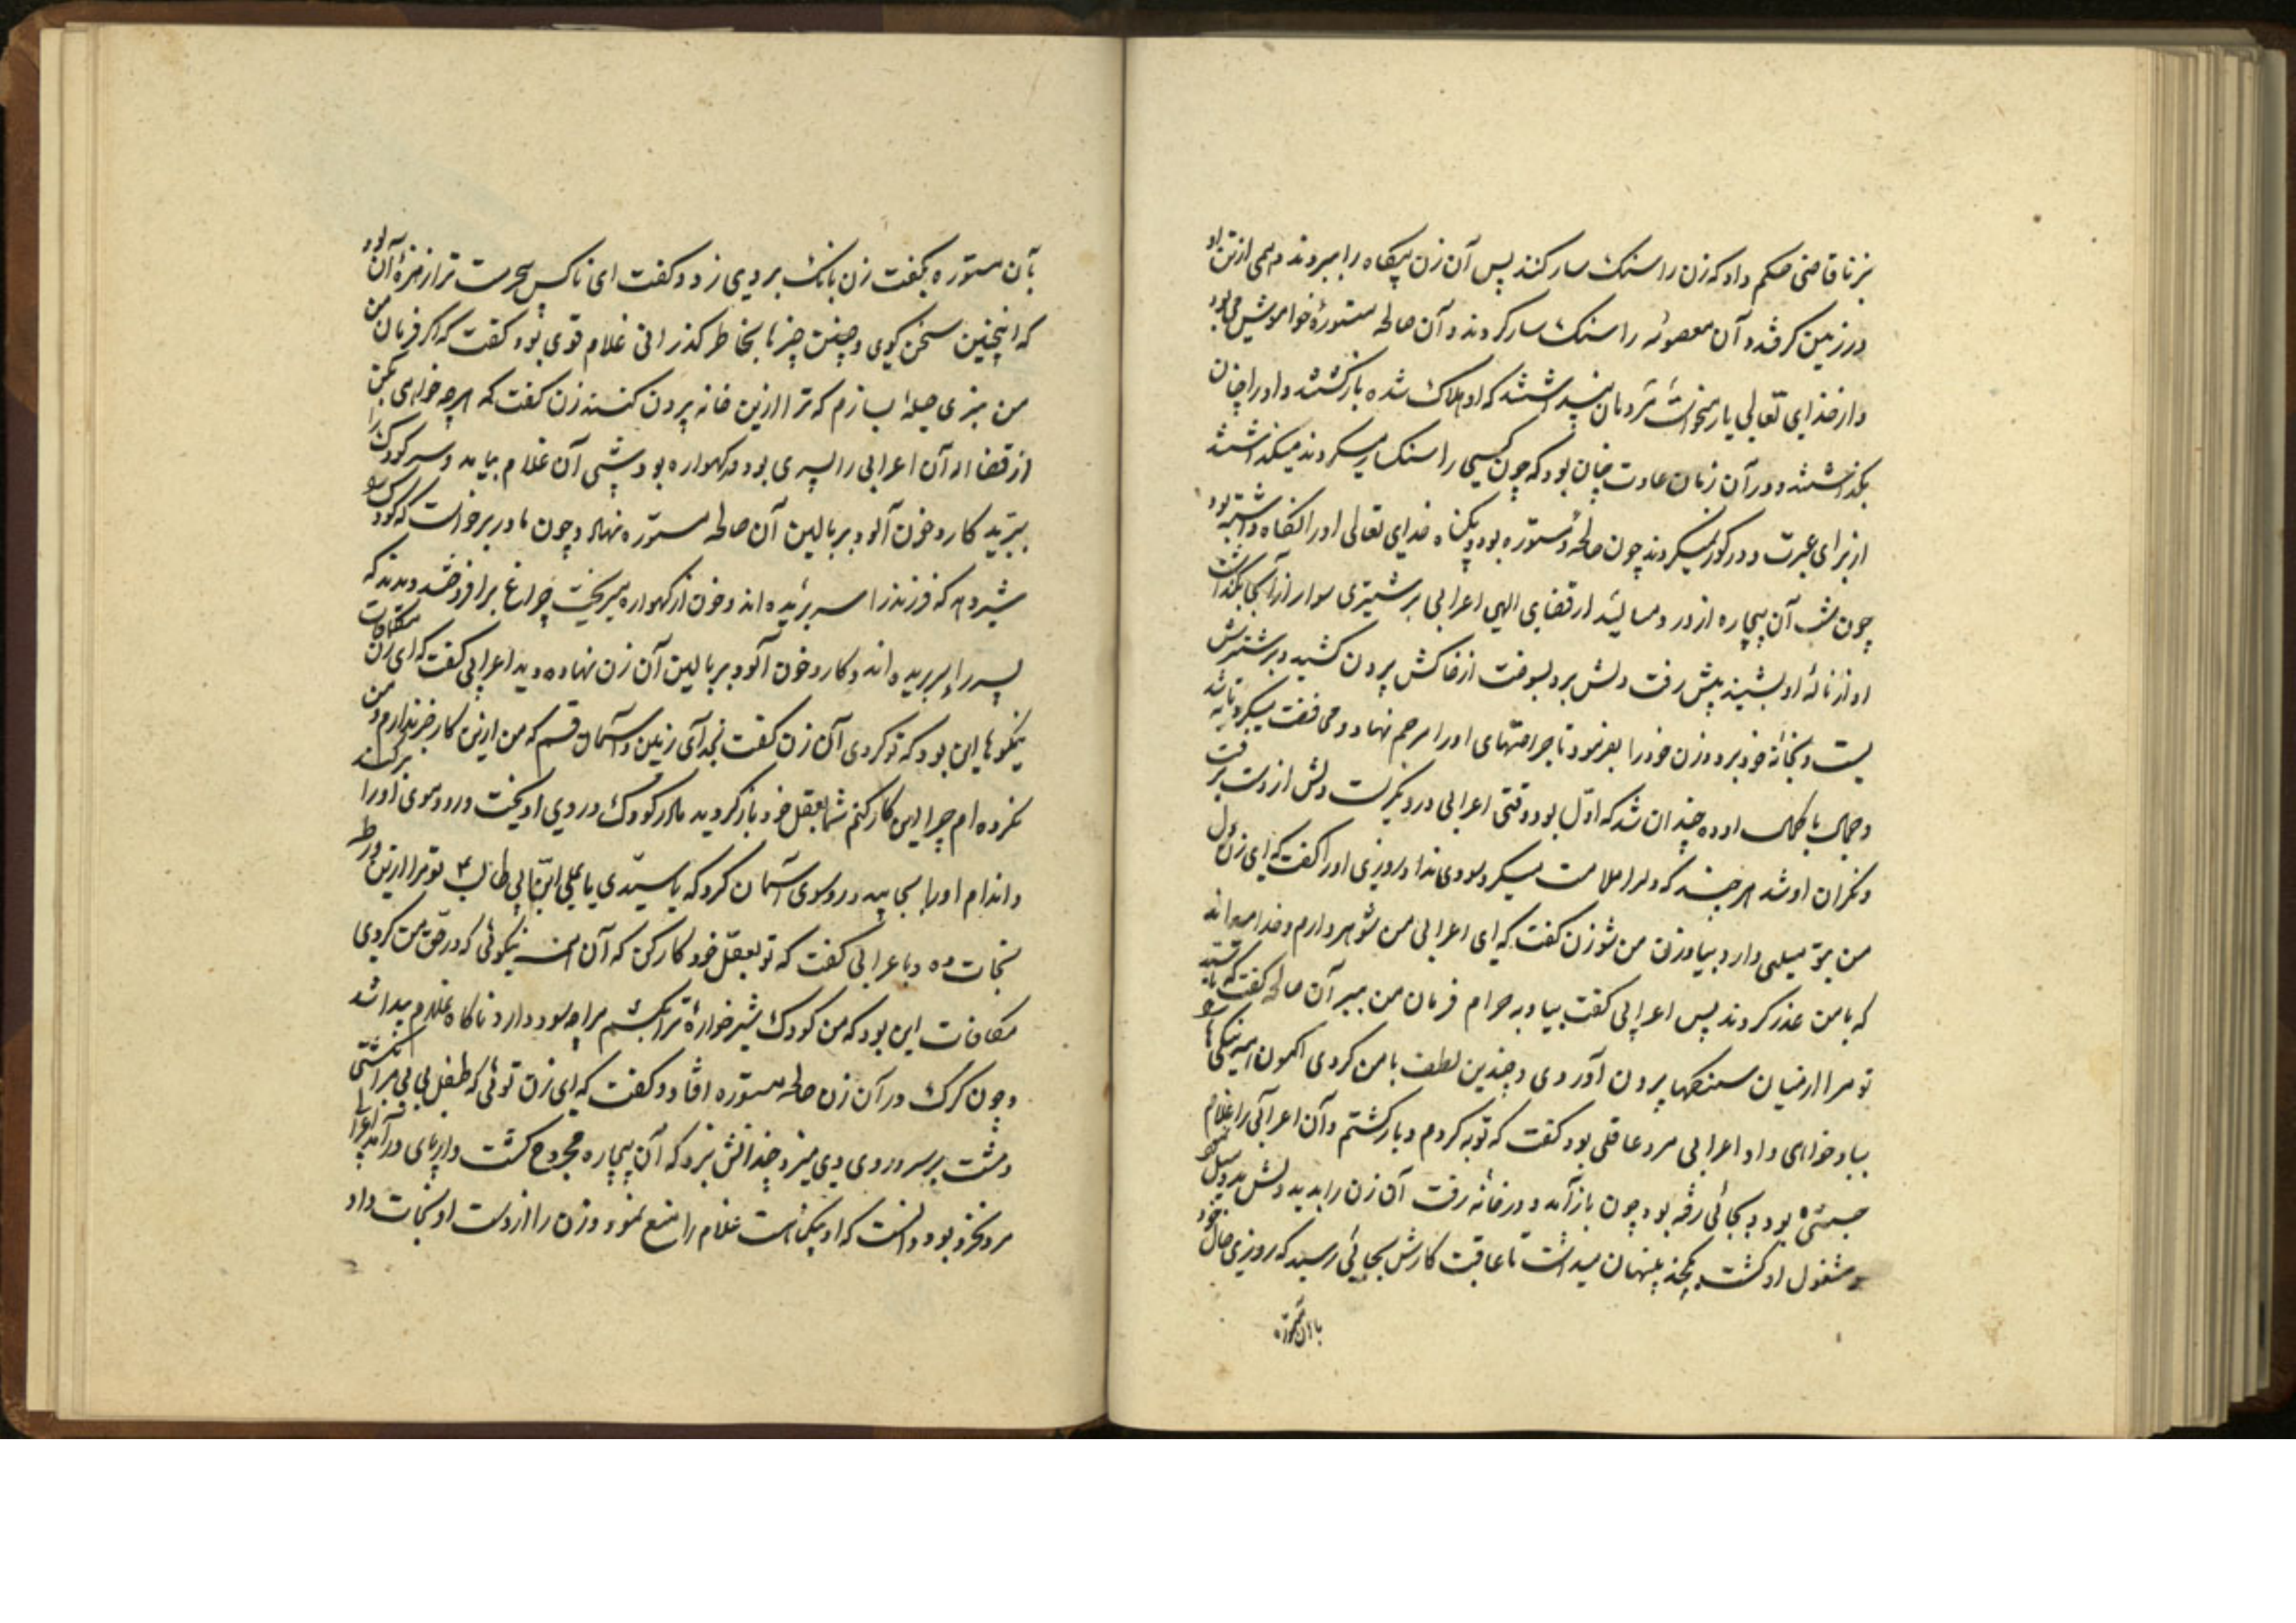 بزنا قاضی حکم داد که زن را سنک سار کنند پس آن زن بیکناه را ببردند و نیمی از تن او
در زمین کرفتند و آن معصومه را سنک سار کردند و آن صالحه مستوره خواموش می بود
و از خذای تعالی یاری میخواست مردمان پنداشتند که او هلاک شده بازکشتند و او را چنان
بکذاشتند و در آن زمان عادت چنان بود که چون کسی را سنکسار میکردند میکذاشتند
از برای عبرت و در کور نمیکردند چون صالحه و مستوره بود و بیکناه خدای تعالی او را نکاه داشته بود
چون شب آن بیچاره از درد مینالید از قضای الهی اعرابی بر شتری سوار از آنجا بکذشت
آواز نالهٔ او بشنید پیش رفت دلش برو بسوخت از خاکش بیرون کشید و بر شترش
بست و بخانهٔ خود برد و زن خود را بفرمود تا جراحتهای او را مرحم نهاد و محافظت میکرد تا به شد
و جمال با کمال او ده چندان شد که اوّل بود وقتی اعرابی درو نکریست دلش از دست برفت
و نکران او شد هرچند که دل را ملامت میکرد سودی نداد روزی او را کفت که ای زن دل
من بتو میلی دارد بیا و زن من شو زن کفت که ای اعرابی من شوهر دارم و خدا
که با من عذر کردند پس اعرابی کفت بیا و به حرام فرمان من ببر آن صالحه کفت که
تو مرا از میان سنکها بیرون آوردی و چندین لطف با من کردی اکنون این نیکیها
بباد خواهی داد اعرابی مرد عاقلی بود کفت که توبه کردم و بازکشتم و آن اعرابی را غلام
حبشی بود و بجائی رفته بود چون بازآمد و در خانه رفت آن زن را بدید دلش بدو میل نمود
و مشغول او کشت بچند پنهان میداشت تا عاقبت کارش بجائی رسید که روزی حال خود
باآن مستوره
بآن مستوره بکفت زن بانک بر وی زد و کفت ای ناکس چرست ترا از مزهٔ آن بود
که اینچنین سخن کوی و چنین چیزها بخاطر کذرانی غلام قوی بود کفت که اکر فرمان من
نبری حیلهٔ بسازم که ترا ازین خانه بیرون کنند زن کفت که هرچه خواهی بکن
از قضا را آن اعرابی را پسری بود در کهواره بود شبی آن غلام بیامد و سر کودک را
ببرید کارد خون آلود بر بالین آن صالحه مستوره نهاد و چون مادر برخواست که کودک را
شیر دهد که فرزند را سر بریده اند و خون از کهواره میریخت چراغ برافروختند دیدند که
پسر را سر بریده اند و کارد خون آلود بر بالین آن زن نهاده دید اعرابی کفت که ای زن مکافات
نیکوها این بود که تو کردی آن زن کفت بخدای زمین و آسمان قسم که من ازین کار خبر ندارم و من
نکرده ام چرا این کار کنم شما بعقل خود باز کردید مادر کودک در وی آویخت و رو و موی او را برکند
و اندام او را بخایید و رو سوی آسمان کرد که یا سیّدی یا علی ابن ابی طالب ۴ تو مرا ازین ورطه
نجات ده و با عرابی کفت که تو بعقل خود کار کن که آن همه نیکوئی که در حق من کردی
مکافات این بود که من کودک شیر خوارهٔ ترا بکشم مرا چه سود دارد ناکاه غلام پیدا شد
و چون کرک در آن زن صالحه مستوره افتاد و کفت که ای زن توئی که طفل بی بی مرا بکشتی
و مشت بر سر و روی وی میزد چندانش بزد که آن بیچاره مجروح کشت و از پای درآمد اعرابی
مرد بخرد بود دانست که او بیکناهست غلام را منع نمود و زن را از دست او نجات داد